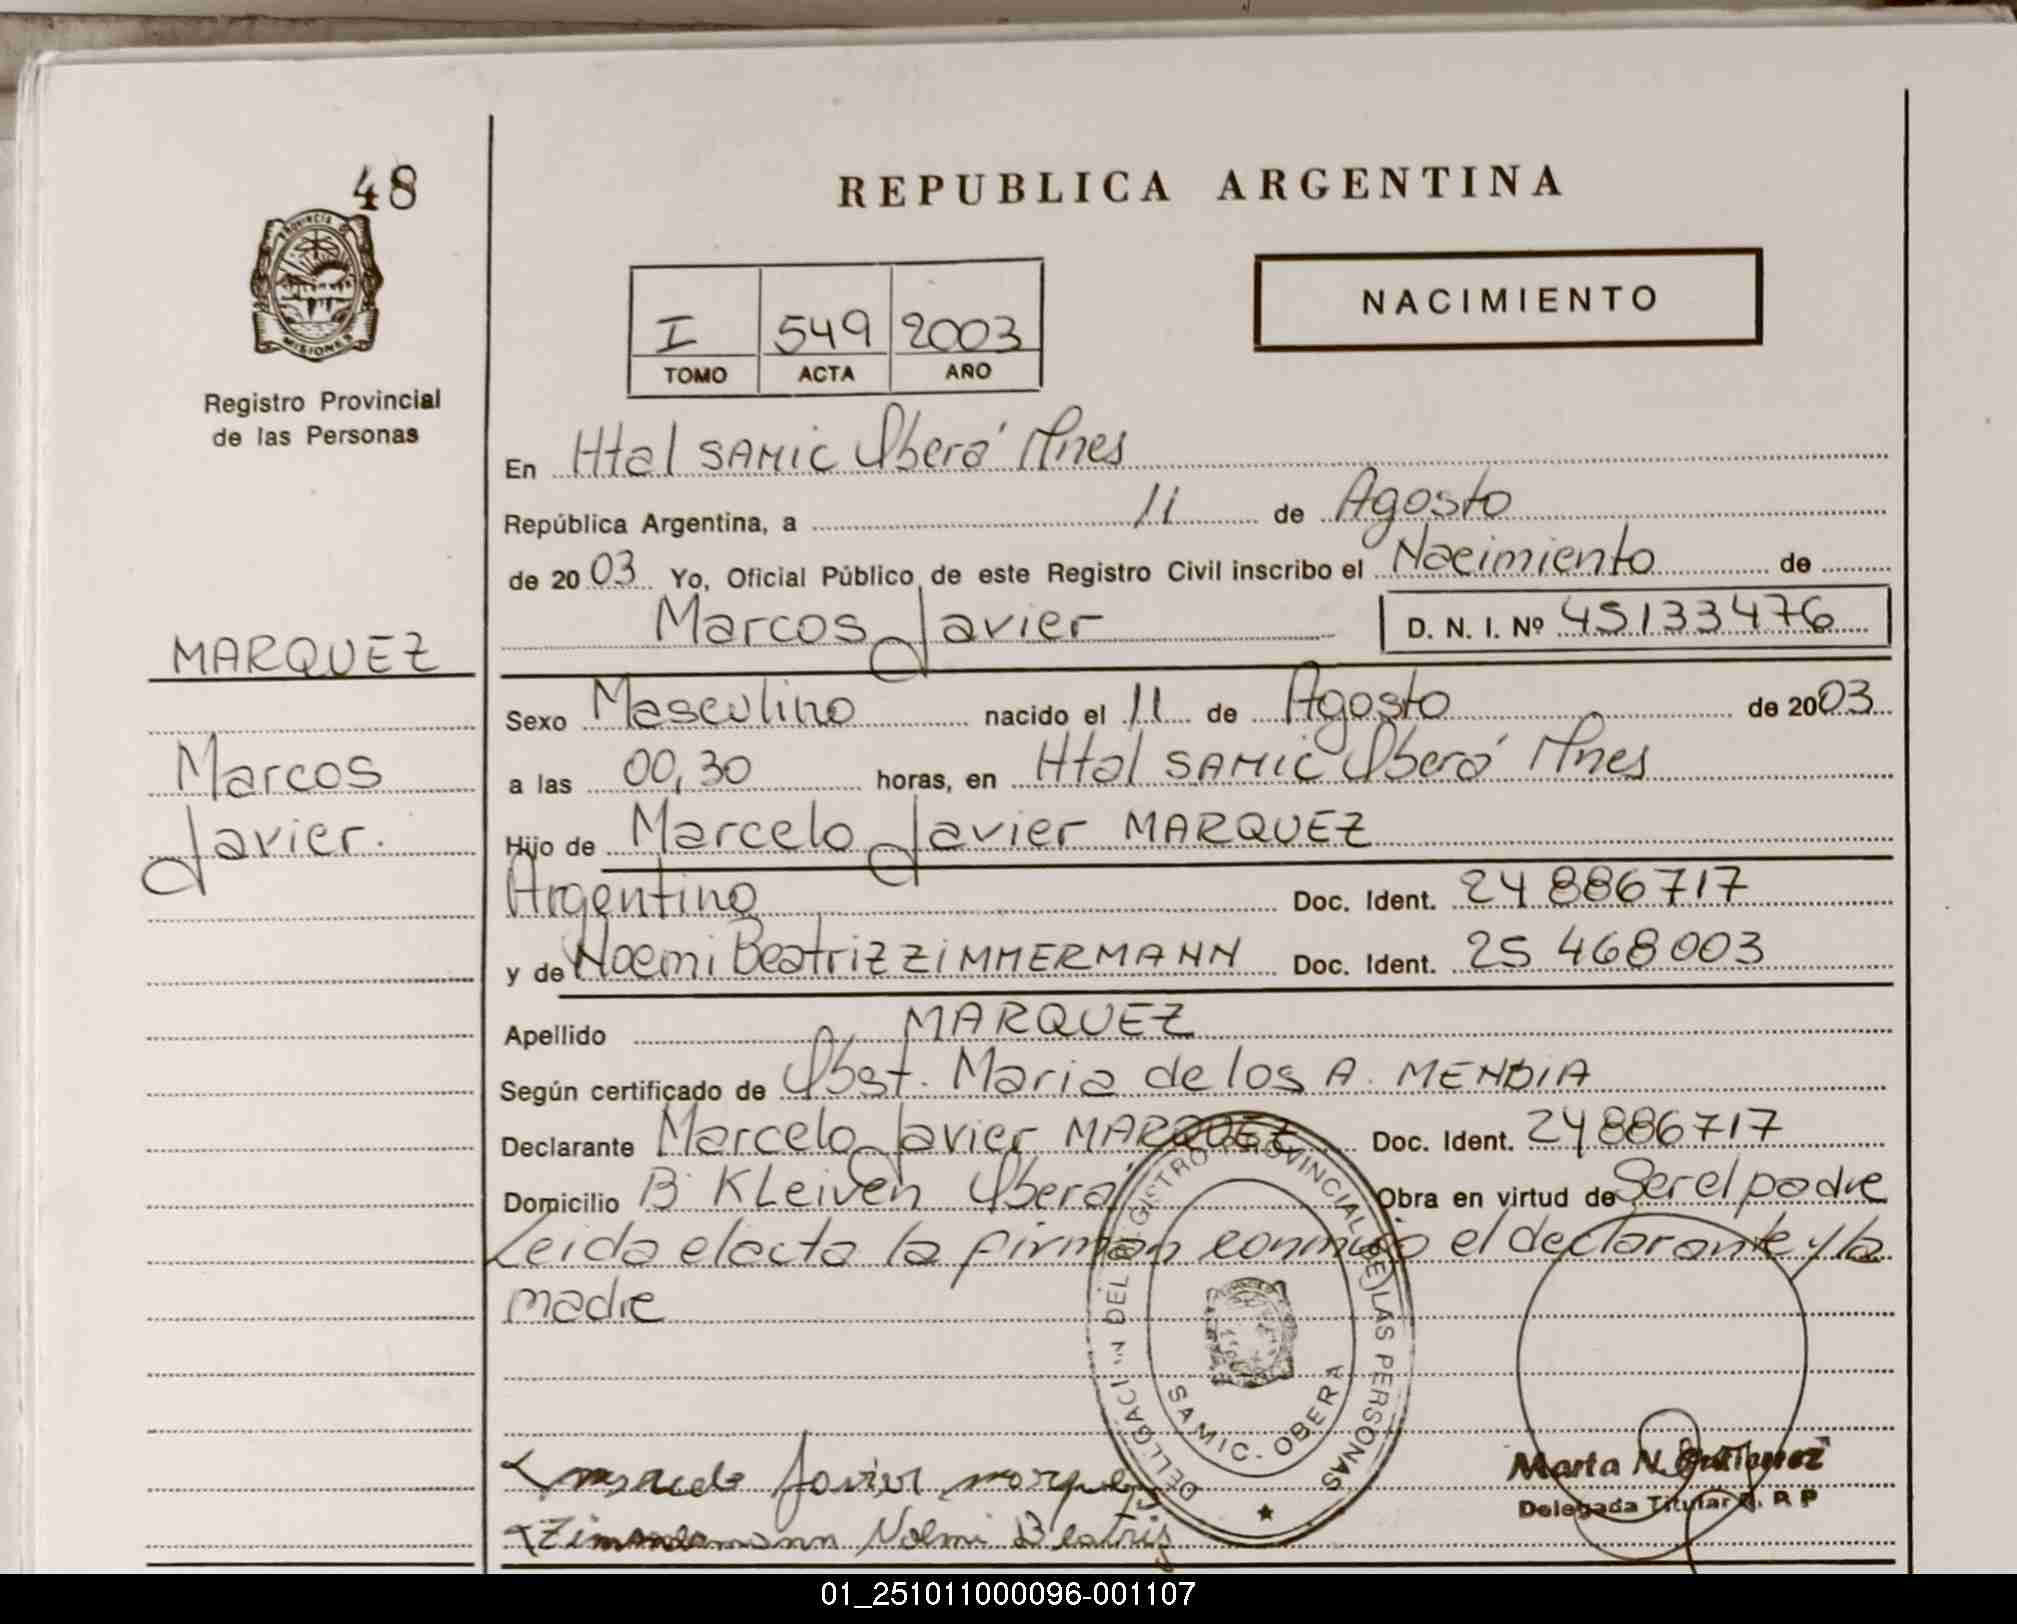 48
PROVINCIA DE
MISIONES
Registro Provincial
de las Personas
MARQUEZ
Marcos
Javier.
REPUBLICA ARGENTINA
I 549 2003
TOMO ACTA AÑO
NACIMIENTO
En Htal SAMIC Oberá Mnes
República Argentina, a 11 de Agosto
de 2003 Yo, Oficial Público de este Registro Civil inscribo el Nacimiento de
Marcos Javier D. N. I. Nº 45133476
Sexo Masculino nacido el 11 de Agosto de 2003
a las 00,30 horas, en Htal SAMIC Oberá Mnes
Hijo de Marcelo Javier MARQUEZ
Argentino Doc. Ident. 24 886717
y de Noemi Beatriz ZIMMERMANN Doc. Ident. 25 468 003
Apellido MARQUEZ
Según certificado de Obst. Maria de los A. MENDIA
Declarante Marcelo Javier MARQUEZ Doc. Ident. 24 886717
Domicilio Bº KLeiven Oberá Obra en virtud de Ser el padre
Leida el acta la firman conmigo el declarante y la
madre
DELEGACION DEL REGISTRO PROVINCIAL DE LAS PERSONAS
SAMIC - OBERA
Javier marquez
Noemi Beatris
Marta N. Gutierrez
Delegada Titular R. R P
01_251011000096-001107